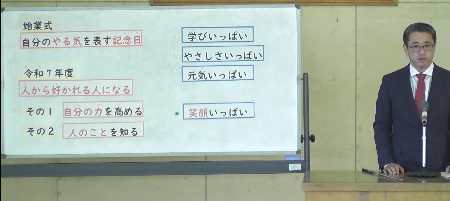 始業式
自分のやる気を表す記念日
令和７年度
人から好かれる人になる
その１ 自分の力を高める
その２ 人のことを知る
学びいっぱい
やさしさいっぱい
元気いっぱい
笑顔いっぱい